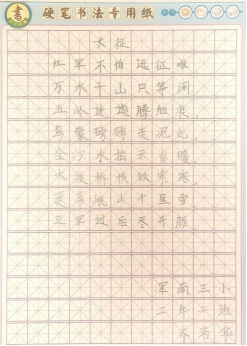 书
硬笔书法专用纸
长征
红军不怕远征难
万水千山只等闲,
五岭逶迤腾细浪,
乌蒙磅礴走泥丸,
金沙水拍云崖暖,
大渡桥横铁索寒,
更喜岷山千里雪
三军过后尽开颜
军南三小
二年二班